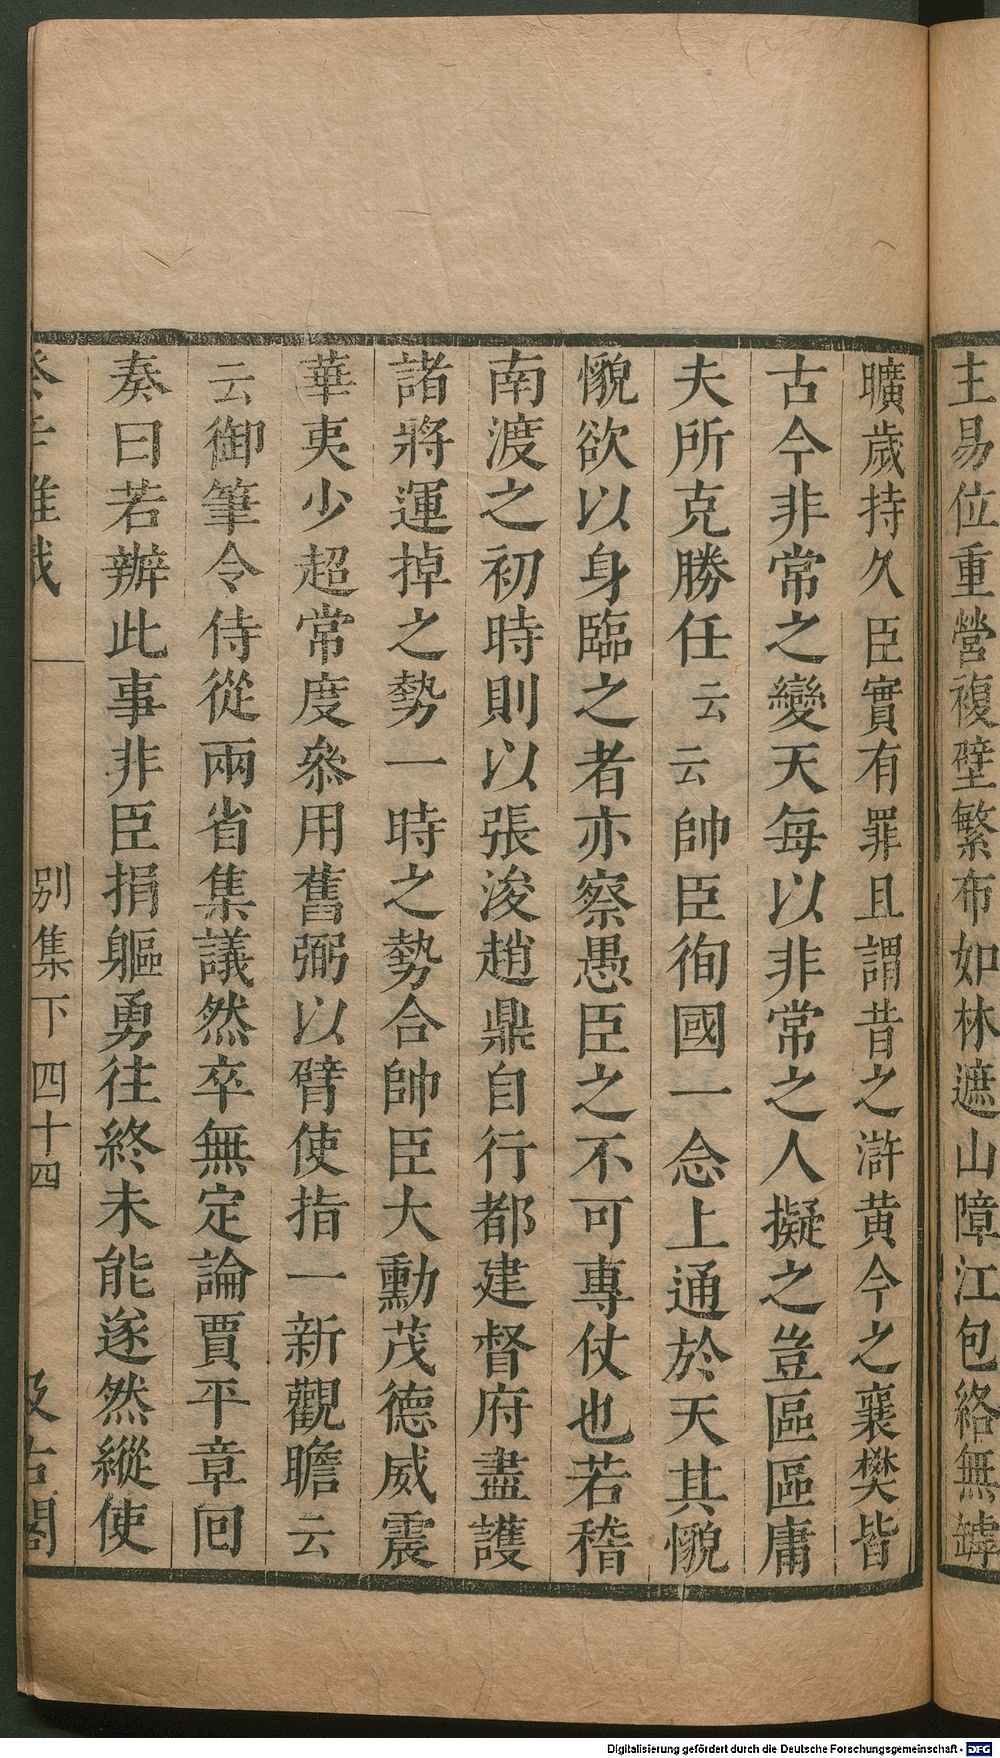 主易位重營複壁繁布如林遮山障江包絡無罅
曠歲持久臣實有罪且謂昔之滸黄今之襄樊皆
古今非常之變天每以非常之人擬之豈區區庸
夫所克勝任云云帥臣徇國一念上通於天其懰
懰欲以身臨之者亦察愚臣之不可專仗也若稽
南渡之初時則以張浚趙鼎自行都建督府盡護
諸將運掉之勢一時之勢合帥臣大勳茂德威震
華夷少超常度叅用舊弼以臂使指一新觀瞻云
云御筆令侍從兩省集議然卒無定論賈平章囘
奏曰若辦此事非臣捐軀勇往終未能遂然縱使
癸辛雜識
別集下 四十四
汲古閣
Digitalisierung gefördert durch die Deutsche Forschungsgemeinschaft - DFG